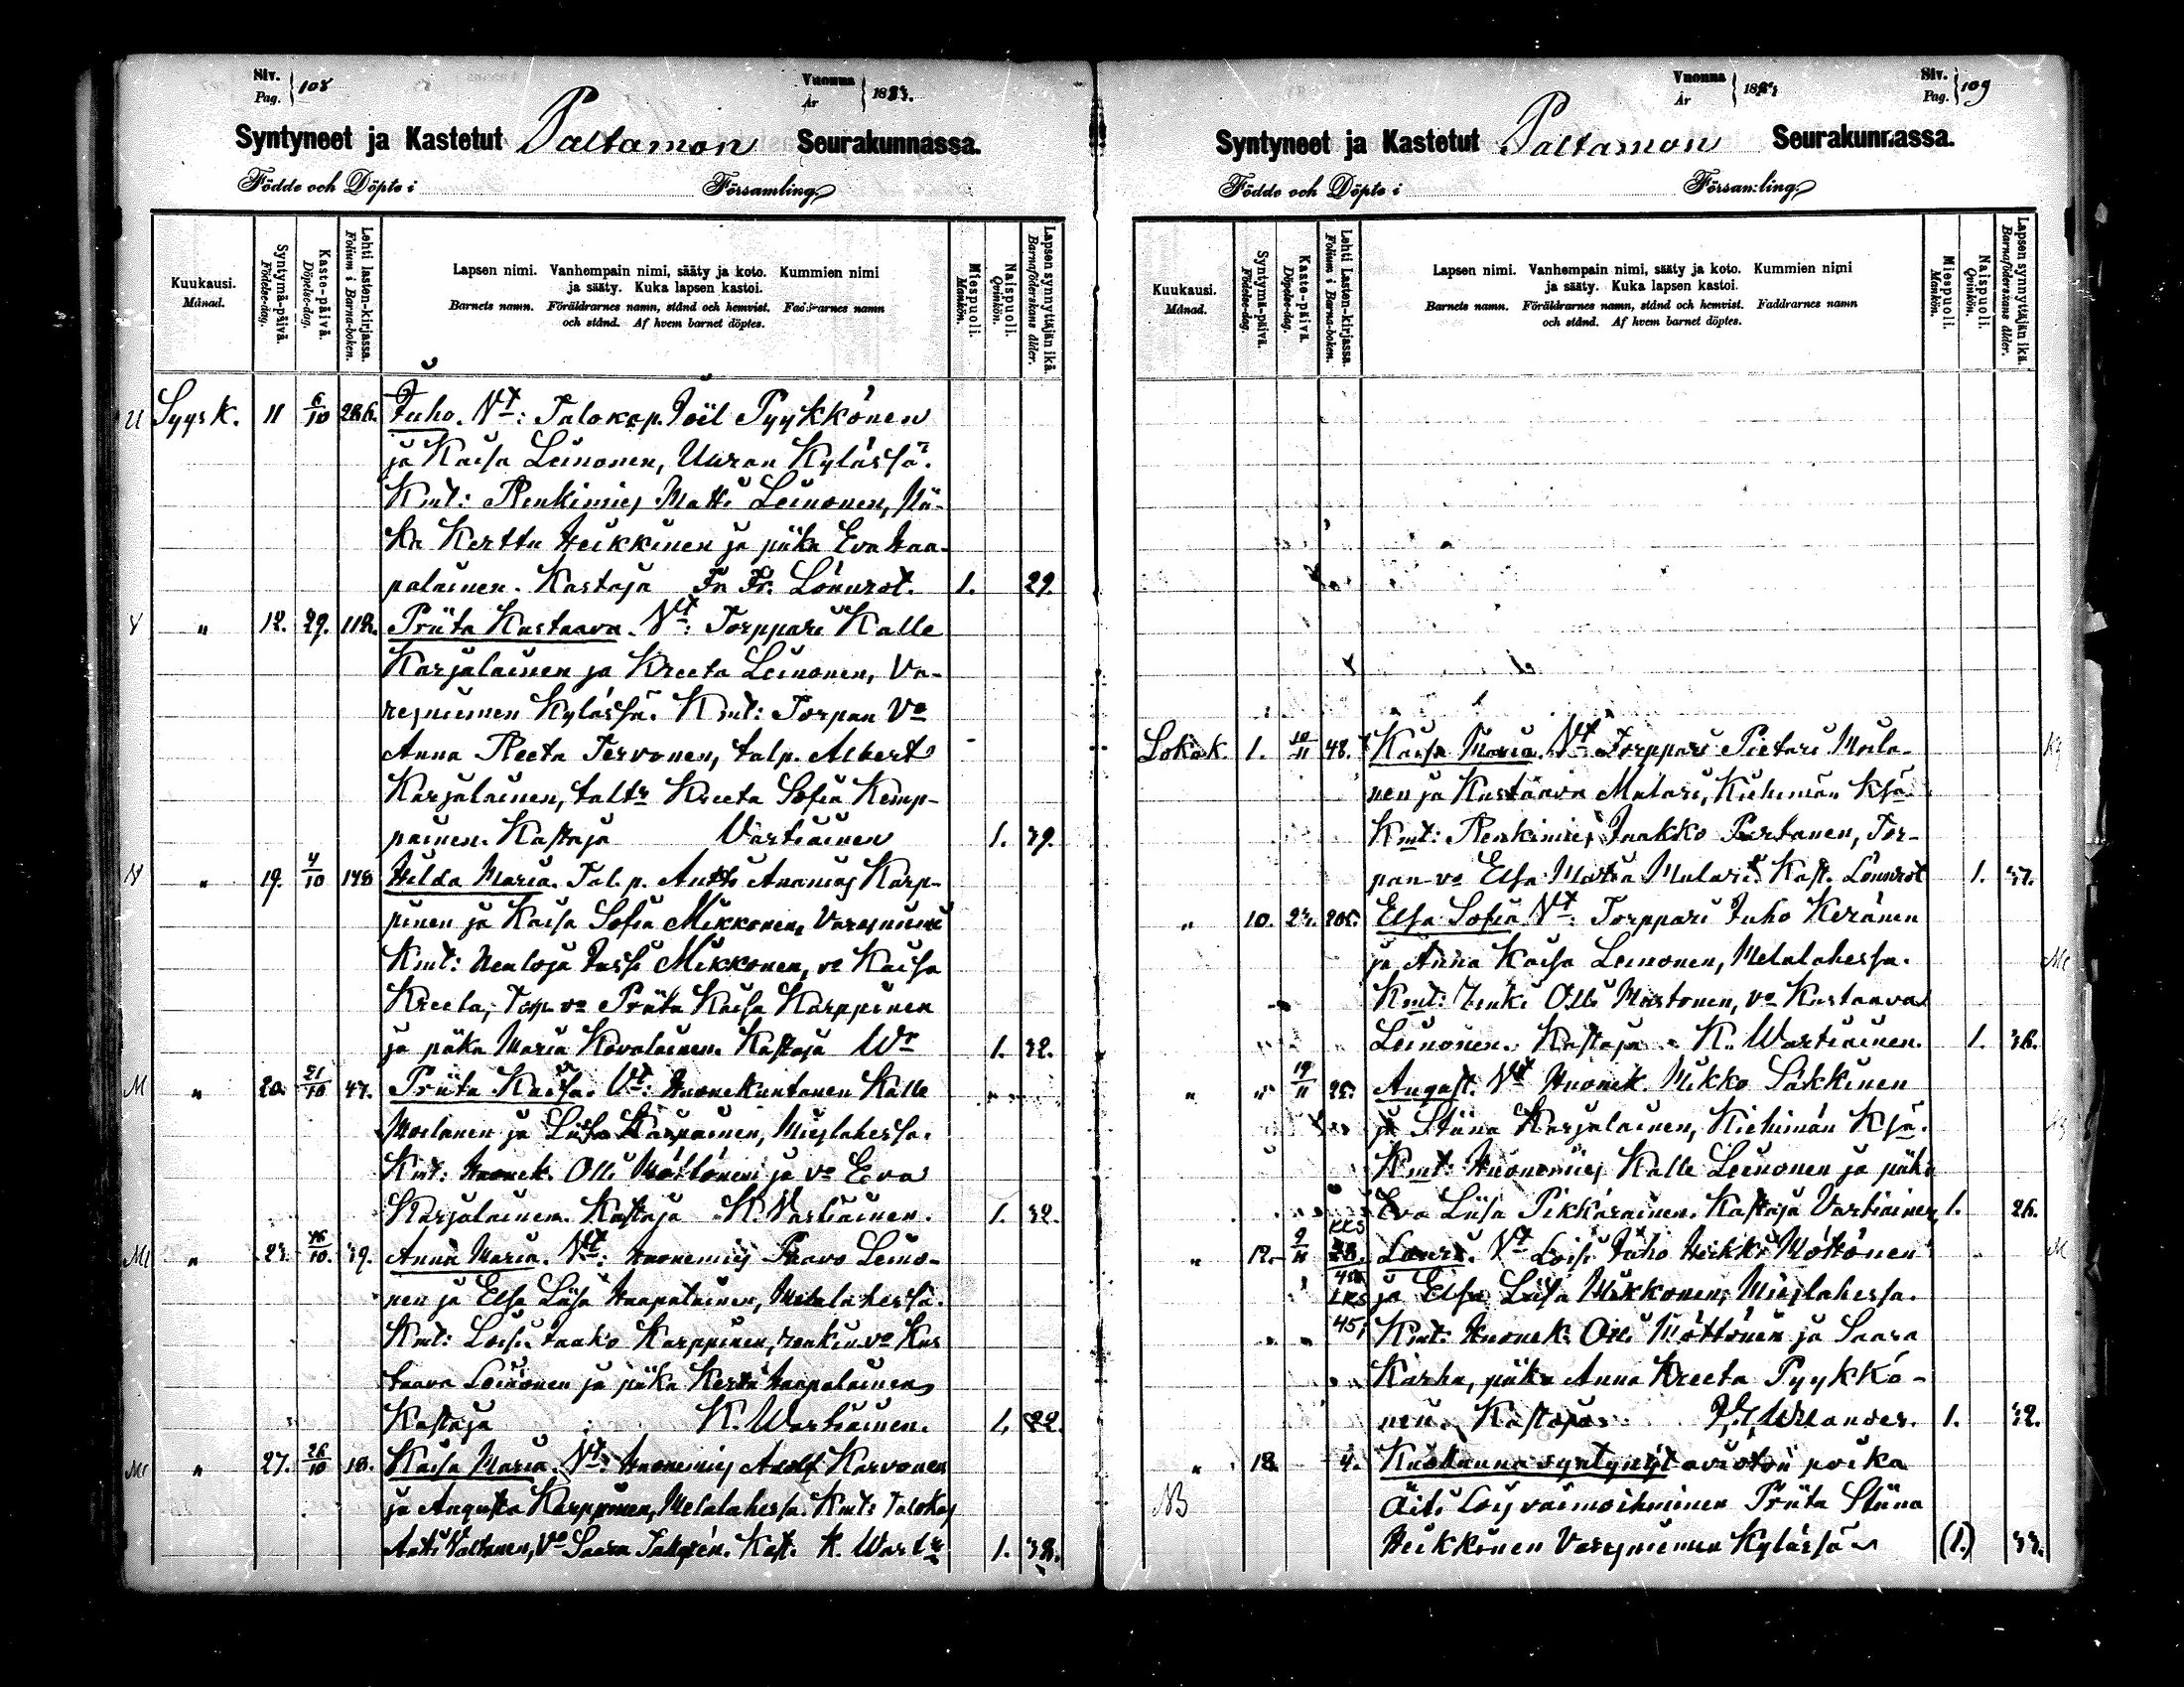 Siv. Pag. 108 Vuonna År 1883.
Syntyneet ja Kastetut Paltamon Seurakunnassa.
Födde och Döpte i Församling
Kuukausi. Månad.
Syntymä-päivä. Födelse-dag.
Kaste-päivä. Döpelse-dag.
Lehti lasten-kirjassa. Folium i Barna-boken.
Lapsen nimi. Vanhempain nimi, sääty ja koto. Kummien nimi
ja sääty. Kuka lapsen kastoi.
Barnets namn. Föräldrarnes namn, stånd och hemvist. Faddrarnes namn
och stånd. Af hvem barnet döptes.
Miespuoli. Mankön.
Naispuoli. Qvinkön.
Lapsen synnyttäjän ikä. Barnaföderskans ålder.
U Syysk. 11 6/10 286. Juho. Vt: Talokap. Joil Pyykkönen
ja Kaisa Leinonen, Uuran Kylässä.
Kmt: Renkimies Matti Leinonen, Pii-
ka Kerttu Heikkinen ja piika Eva Haa-
palainen. Kastaja Fr. Fr. Lönnrot. 1. 29.
V " 12. 29. 112. Priita Kustaava. Vt: Torppari Kalle
Karjalainen ja Kreeta Leinonen, Va-
resniemen Kylässä. Kmt: Torpan Vo
Anna Reeta Tervonen, talp. Albert
Karjalainen, taltr Kreeta Sofia Kemp-
painen. Kastaja Vartiainen 1. 39.
V " 19. 4/10 148 Hilda Maria. Tal. p. Antti Ananias Karp-
pinen ja Kaisa Sofia Mikkonen, Varesniemi
Kmt: Neuloja Jussi Mikkonen, vo Kaisa
Kreeta, Torp. vo Priita Kaisa Karppinen
ja piika Maria Kovalainen. Kastaja Wr 1. 32.
M " 20. 21/10 47. Priita Kaisa. Vt: Huonekuntanen Kalle
Moilanen ja Liisa Karppinen, Mieslahessa.
Kmt: Huonek. Olli Möttönen ja vo Eva
Karjalainen. Kastaja K. Vartiainen. 1. 32.
Ml " 23. /10. 39. Anna Maria. Vt: Huonemies Paavo Leino-
nen ja Elsa Liisa Haapalainen, Melalahessa.
Kmt: Loisi Jaako Karppinen, renkin vo Kus
taava Leinonen ja piika Kerttu Haapalainen
Kastaja K. Wartiainen. 1. 22.
Ml " 27. 26/10 18. Kaisa Maria. Vt: Huonemies Adolf Karvonen
ja Augusta Karppinen, Melalahessa. Kmt: Talokas
Antti Valtanen, Vo Saara Kast. K. Wart 1. 38.
Siv. Pag. 109 Vuonna År 1883
Syntyneet ja Kastetut Paltamon Seurakunnassa.
Födde och Döpte i Församling
Kuukausi. Månad.
Syntymä-päivä. Födelse-dag.
Kaste-päivä. Döpelse-dag.
Lehti Lasten-kirjassa. Folium i Barna-boken.
Lapsen nimi. Vanhempain nimi, sääty ja koto. Kummien nimi
ja sääty. Kuka lapsen kastoi.
Barnets namn. Föräldrarnes namn, stånd och hemvist. Faddrarnes namn
och stånd. Af hvem barnet döptes.
Miespuoli. Mankön.
Naispuoli. Qvinkön.
Lapsen synnyttäjän ikä. Barnaföderskans ålder.
Lokak. 1. 10/11 48. Kaisa Maria. Vt Torppari Pietari Moila-
nen ja Kustaava Mulari, Kiehimän Ksä.
Kmt: Renkimies Jaakko Partanen, Tor-
pan vo Elsa Maria Mulari. Kast. Lönnrot 1. 37.
" 10. 23. 205. Elsa Sofia. Vt: Torppari Juho Keränen
ja Anna Kaisa Leinonen, Melalahessa. Ml
Kmt: Renki Olli Mustonen, vo Kustaava
Leinonen. Kastaja K. Wartiainen. 1. 36.
" " 19/11 25. August. Vt Huonek. Mikko Säkkinen
ja Stiina Karjalainen, Kiehimän Ksä.
Kmt: Huonemies Kalle Leinonen ja piika
Eva Liisa Pikkarainen. Kastaja Vartiainen 1. 26.
" 12. 9/11 KKS Lauri. Vt Loisi Juho Heikki Möttönen M
LKS ja Elsa Liisa Mikkonen, Mieslahessa.
45, Kmt: Huonek. Olli Möttönen ja Saara
Karhu, piika Anna Kreeta Pyykkö-
nen. Kastaja Wilander. 1. 32.
" 18. 4. Kuolleena syntynyt avioton poika
NB Äiti Lois vaimoihminen Priita Stiina
Heikkinen Varesniemen Kylässä (1.) 33.